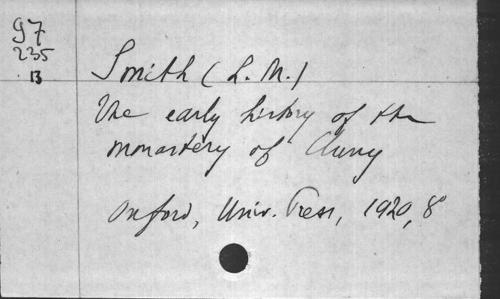 97
235
13
Smith (L. M.)
The early history of the
monastery of Cluny
Oxford, Univ. Press, 1920, 8°